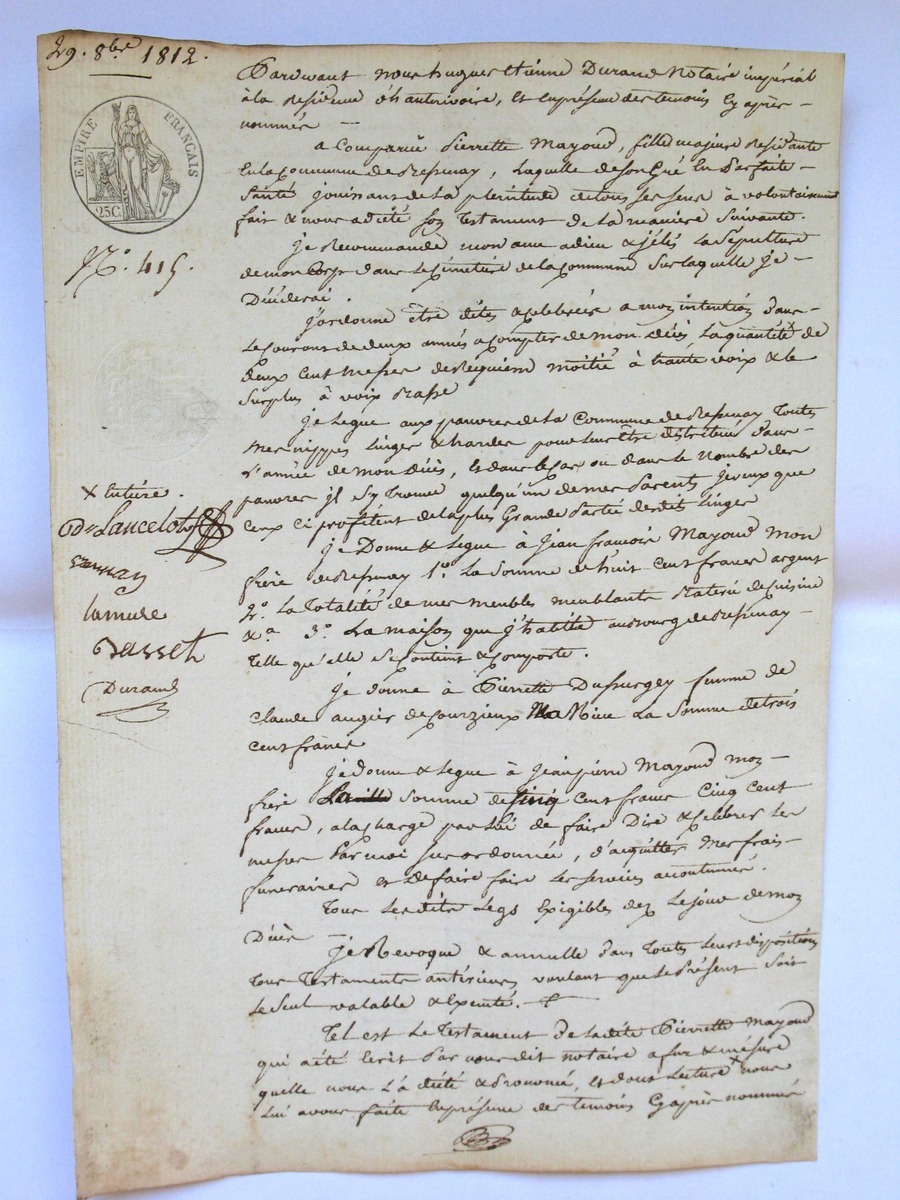 29. 8bre 1812.
EMPIRE FRANÇAIS
25C
No. 415.
Pardevant nous hugues Etienne Durand Notaire impérial
à la Residence d'hauterivoire, et en présence des temoins cy après
nommés
a Comparue Pierrette Mayoud, fille majeure Residante
En la Commune de Respinay, Laquelle de son Gré En Parfaite
Santé jouissant de la pleinitude de tous ses sens à volontairement
fait & nous a dicté son Testament de la maniere Suivante.
je Recommande mon ame a dieu & j'élis La Sépulture
de mon Corps dans Le Cimetière de la Commune Sur laquelle je
Décéderai.
J'ordonne être dites & célébrées a mon intention dans
Le Courant de deux années a compter de mon Décès, La quantité de
deux cent messes de Requiem moitié à haute voix & le
Surplus à voix Basse
je Legue aux pauvres de la Commune de Respinay Toutes
mes nippes Linges & hardes pour Leur être distribués dans
L'année de mon Décès, Et dans le Cas ou dans le Nombre des
pauvres il s'y Trouve quelqu'un de mes Parents je veux que
Ceux Ci profitent de la plus Grande Partie desdits Linges
je Donne & Legue à Jean francois Mayoud mon
frère de Respinay 1o. La Somme de huit Cent francs argent
2o. La Totalité de mes meubles meublants Baterie de Cuisine
&a 3o. La maison que j'habite au Bourg de Respinay
Telle qu'elle se Contient & Comporte.
je donne à Pierrette Dussurgey femme de
Claude augier de Courzieux Ma Niece La Somme de trois
Cent francs
je Donne & Legue à Jean pierre Mayoud mon
frère La somme de Cinq Cent francs Cinq Cent
francs, a la Charge par lui de faire Dire & Celebrer Les
messes Par moi sus ordonnées, d'acquitter mes frais
funeraires et de faire faire Les Services accoutumés.
Tous Lesdits Legs Exigibles dez Le jour de mon
Décès
je Revoque & annulle dans Toutes Leurs dispositions
Tous Testaments antérieurs voulant que Le Présent Soit
Le Seul valable & Executé.
Tel est Le Testament de Ladite Pierrette Mayoud
qui a été Ecrit Par nous dit notaire a fur & mésure
quelle nous L'a dicté & Prononcé, Et dont Lecture x nous
Lui avons faite En présence des temoins Cy après nommés
x entière.
Lancelot
Lamure
Basset
Durand